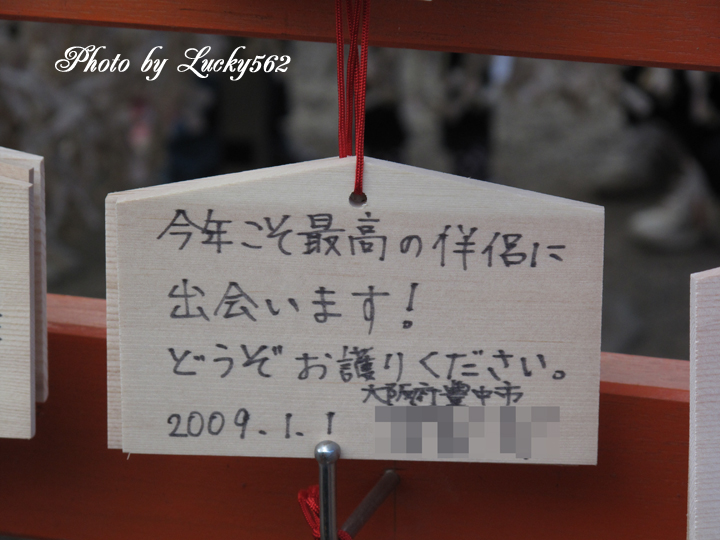 Photo by Lucky562
今年こそ最高の伴侶に
出会います!
どうぞお護りください。
大阪府豊中市
2009.1.1